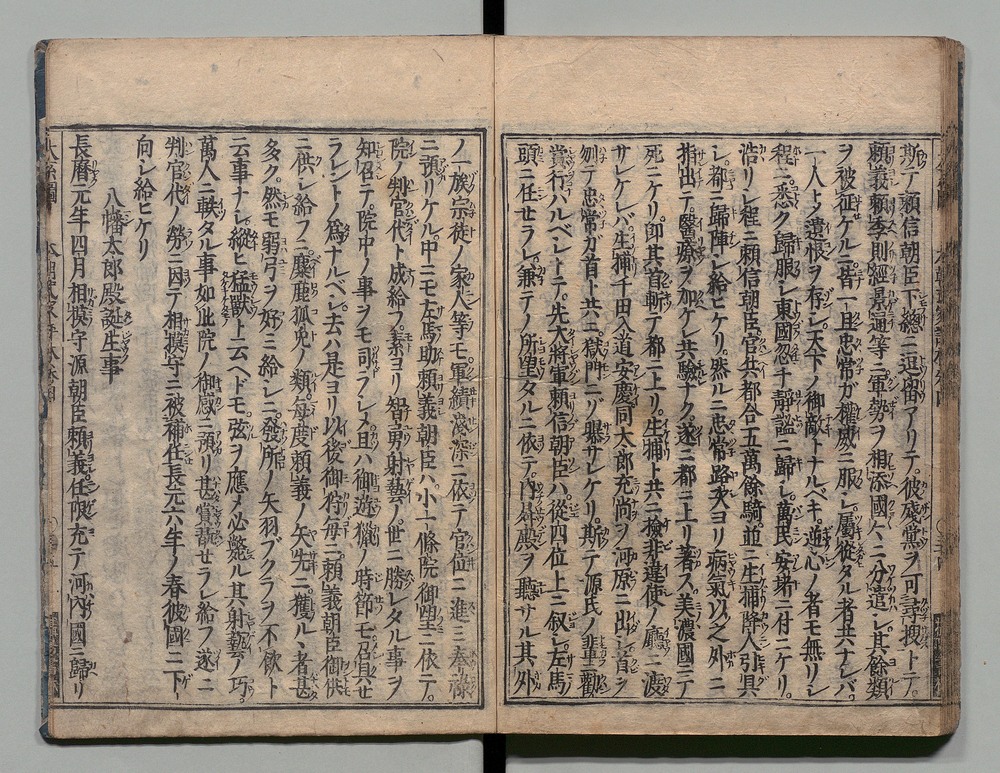 斯テ頼信朝臣下總ニ逗宙アリテ。彼殘黨ヲ可尋搜トテ。
頼義頼季則經景遍等ニ軍勢ヲ相添國々ニ分遣シ。其餘類
ヲ被征ケルニ。皆一旦忠常ガ權威ニ服シ。屬從タル者共ナレバ。
一人トノ遺恨ヲ存シ。天下ノ御敵トナルベキ。逆心ノ者モ無リシ
程ニ。悉ク歸服シ。東國忽チ靜謐ニ歸シ。萬民安堵ニ付ニケリ。
浩リシ程ニ。頼信朝臣官兵都合五萬餘騎。並ニ生捕將人引具
シ。都ニ歸陣シ給ヒケリ。然ルニ忠常路次ヨリ病氣以之外ニ
指出テ醫療ヲ加ケレ共驗ナク。遂ニ都ニ上リ著ス。美濃國ニテ
死ニケリ。即其首斬テ都ニ上リ。生捕ト共ニ檢非違使ノ廳ニ渡
サレケレバ。生捕千田入道安慶同太郎充尚ヲ河原ニ出シ首ヲ
刎テ忠常ガ首ト共ニ。獄門ニゾ曝サレケリ。斯テ源氏ノ輩ニ勸
賞行ハルベシトテ。先大將軍頼信朝臣ハ從四位上ニ叙シ。左馬
頭ニ任セラル。兼テノ所望タルニ依テ。内外昇殿ヲ聽サル其外
ノ一族宗徒ノ家人等モ。軍績淺深ニ依テ官位ニ進ミ奉祿
ニ預リケル中ニモ左馬助頼義朝臣ハ。小一條院御望ニ依テ。
院ノ判官代ト成給フ。素ヨリ智勇射藝ノ世ニ勝レタル事ヲ
知召テ。院中ノ事ヲモ司ラシメ。且ハ御遊獵ノ時節モ召具セ
ラレントノ爲ナルベシ。去ハ是ヨリ以後御狩毎ニ頼義朝臣御供
ニ供シ給フニ。麋鹿狐兔ノ類。毎度頼義ノ矢先ニ獲ル丶者甚
多ク。然モ弱弓ヲ好ミ給シニ。發所ノ矢羽ブクラヲ不飮ト
云事ナシ。縱ヒ猛獸ト云ヘドモ。弦ヲ應メ必斃ル。其射藝ノ巧
萬人ニ軼タル事如此院ノ御感ニ預リ甚賞翫セラレ給フ。遂ニ
判官代ノ勞ニ因テ相摸守ニ被補任。長元六年ノ春彼國ニ下
向シ給ヒケリ
八幡太郎殿誕生事
長曆元年四月相摸守源朝臣頼義任限充テ河内國ニ歸リ